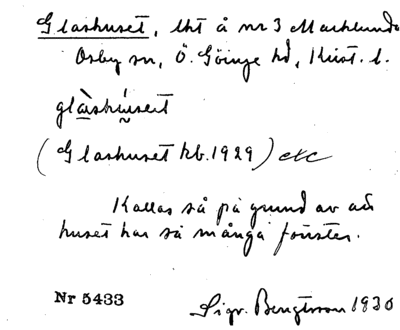 Glashuset, lht å nr 3 Marklunda
Osby sn, Ö. Göinge hd, Krist. l.
glàshúset
(Glashuset kb. 1929) etc
Kallas så på grund av att
huset har så många fönster.
Nr 5433
Sigv. Bengtsson 1930